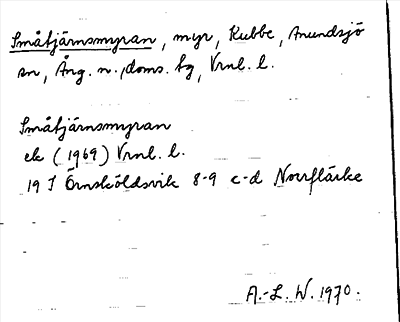 Småtjärnsmyran, myr, Kubbe, Anundsjö
sn, Ång. n., doms. tg, Vrnl. l.
Småtjärnsmyran
ek (1969) Vrnl. l.
19 I Örnsköldsvik 8-9 c-d Norrflärke
A.-L. W. 1970.